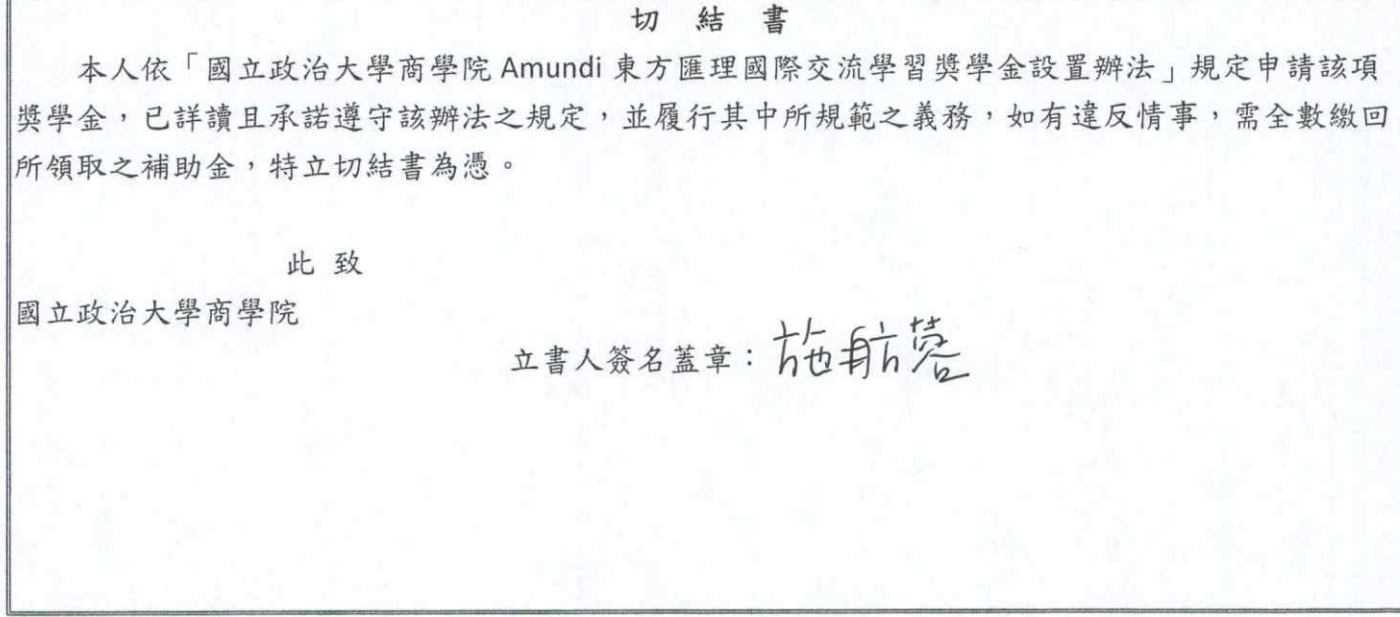 切 結 書
本人依「國立政治大學商學院 Amundi 東方匯理國際交流學習獎學金設置辦法」規定申請該項
獎學金,已詳讀且承諾遵守該辦法之規定,並履行其中所規範之義務,如有違反情事,需全數繳回
所領取之補助金,特立切結書為憑。
此 致
國立政治大學商學院
立書人簽名蓋章:施航蓉